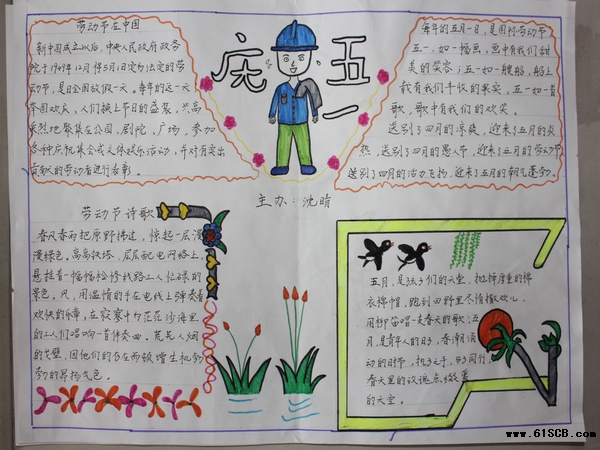 劳动节在中国
新中国成立以后，中央人民政府政务
院于1949年12月将5月1日定为法定的劳
动节，是日全国放假一天。每年的这一天
举国欢庆，人们换上节日的盛装，兴高
采烈地聚集在公园、剧院、广场，参加
各种庆祝集会或文体娱乐活动，并对有突出
贡献的劳动者进行表彰。
庆五一
每年的五月一日，是国际劳动节
五一，如一幅画，画中有我们甜
美的笑容；五一如一艘船，船上
载有我们丰收的果实，五一如一首
歌，歌中有我们的欢笑。
送别了四月的凉爽，迎来了五月的炎
热，送别了四月的愚人节，迎来了五月的劳动节
送别了四月的活力飞扬，迎来了五月的朝气蓬勃。
主办：沈晴
劳动节诗歌
春风春雨把原野拂过，惊起一层漫
漫绿色。高高铁塔，层层配电网路上，
悬挂着一幅幅检修线路工人忙碌的
景色。凡，用温情的手在电线上弹奏着
欢快的乐章，在寂寞中茫茫沙海里
的工人们唱响一首伴奏曲。荒芜人烟
的戈壁，因他们的存在而顿增生机勃
勃的昂扬气色。
五月，是孩子们的天堂，抛掉厚重的棉
衣棉帽，跑到田野里尽情撒欢儿。
用柳笛唱一支春天的歌；五
月，是青年人的日子，春潮涌
动的时节，执子之手，
春天里的玫瑰点缀
的天空。
www.61SCB.com